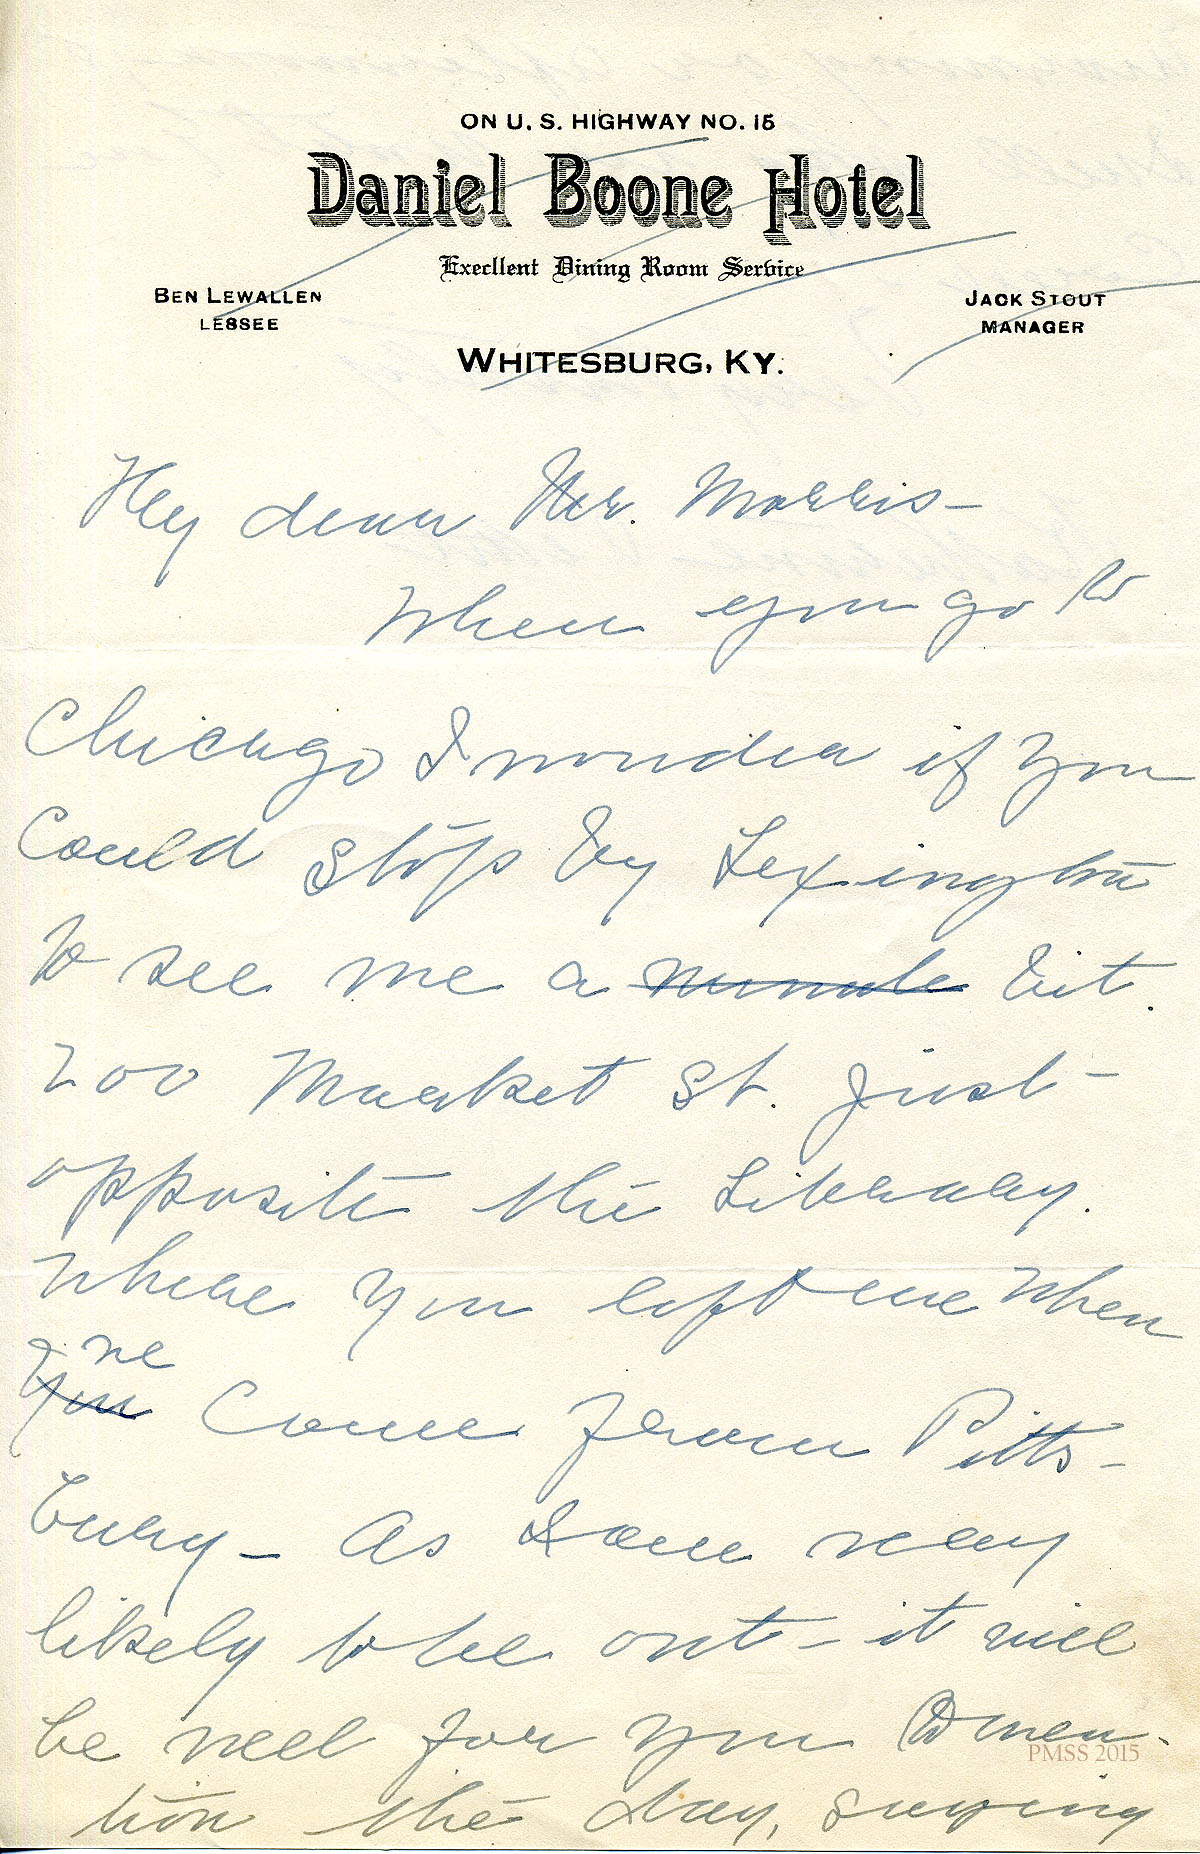 ON U. S. HIGHWAY NO. 15
Daniel Boone Hotel
Execllent Dining Room Service
BEN LEWALLEN
LESSEE
JACK STOUT
MANAGER
WHITESBURG, KY.
My dear Mr. Morris-
When you go to
Chicago I wonder if you
could stop by Lexington
to see me a minute bit.
200 Market St. just-
opposite the Library.
where you left me when
you we come from Pitts-
bury - As I am very
likely to be out - it will
be well for you to men-
tion the day, saying
PMSS 2015